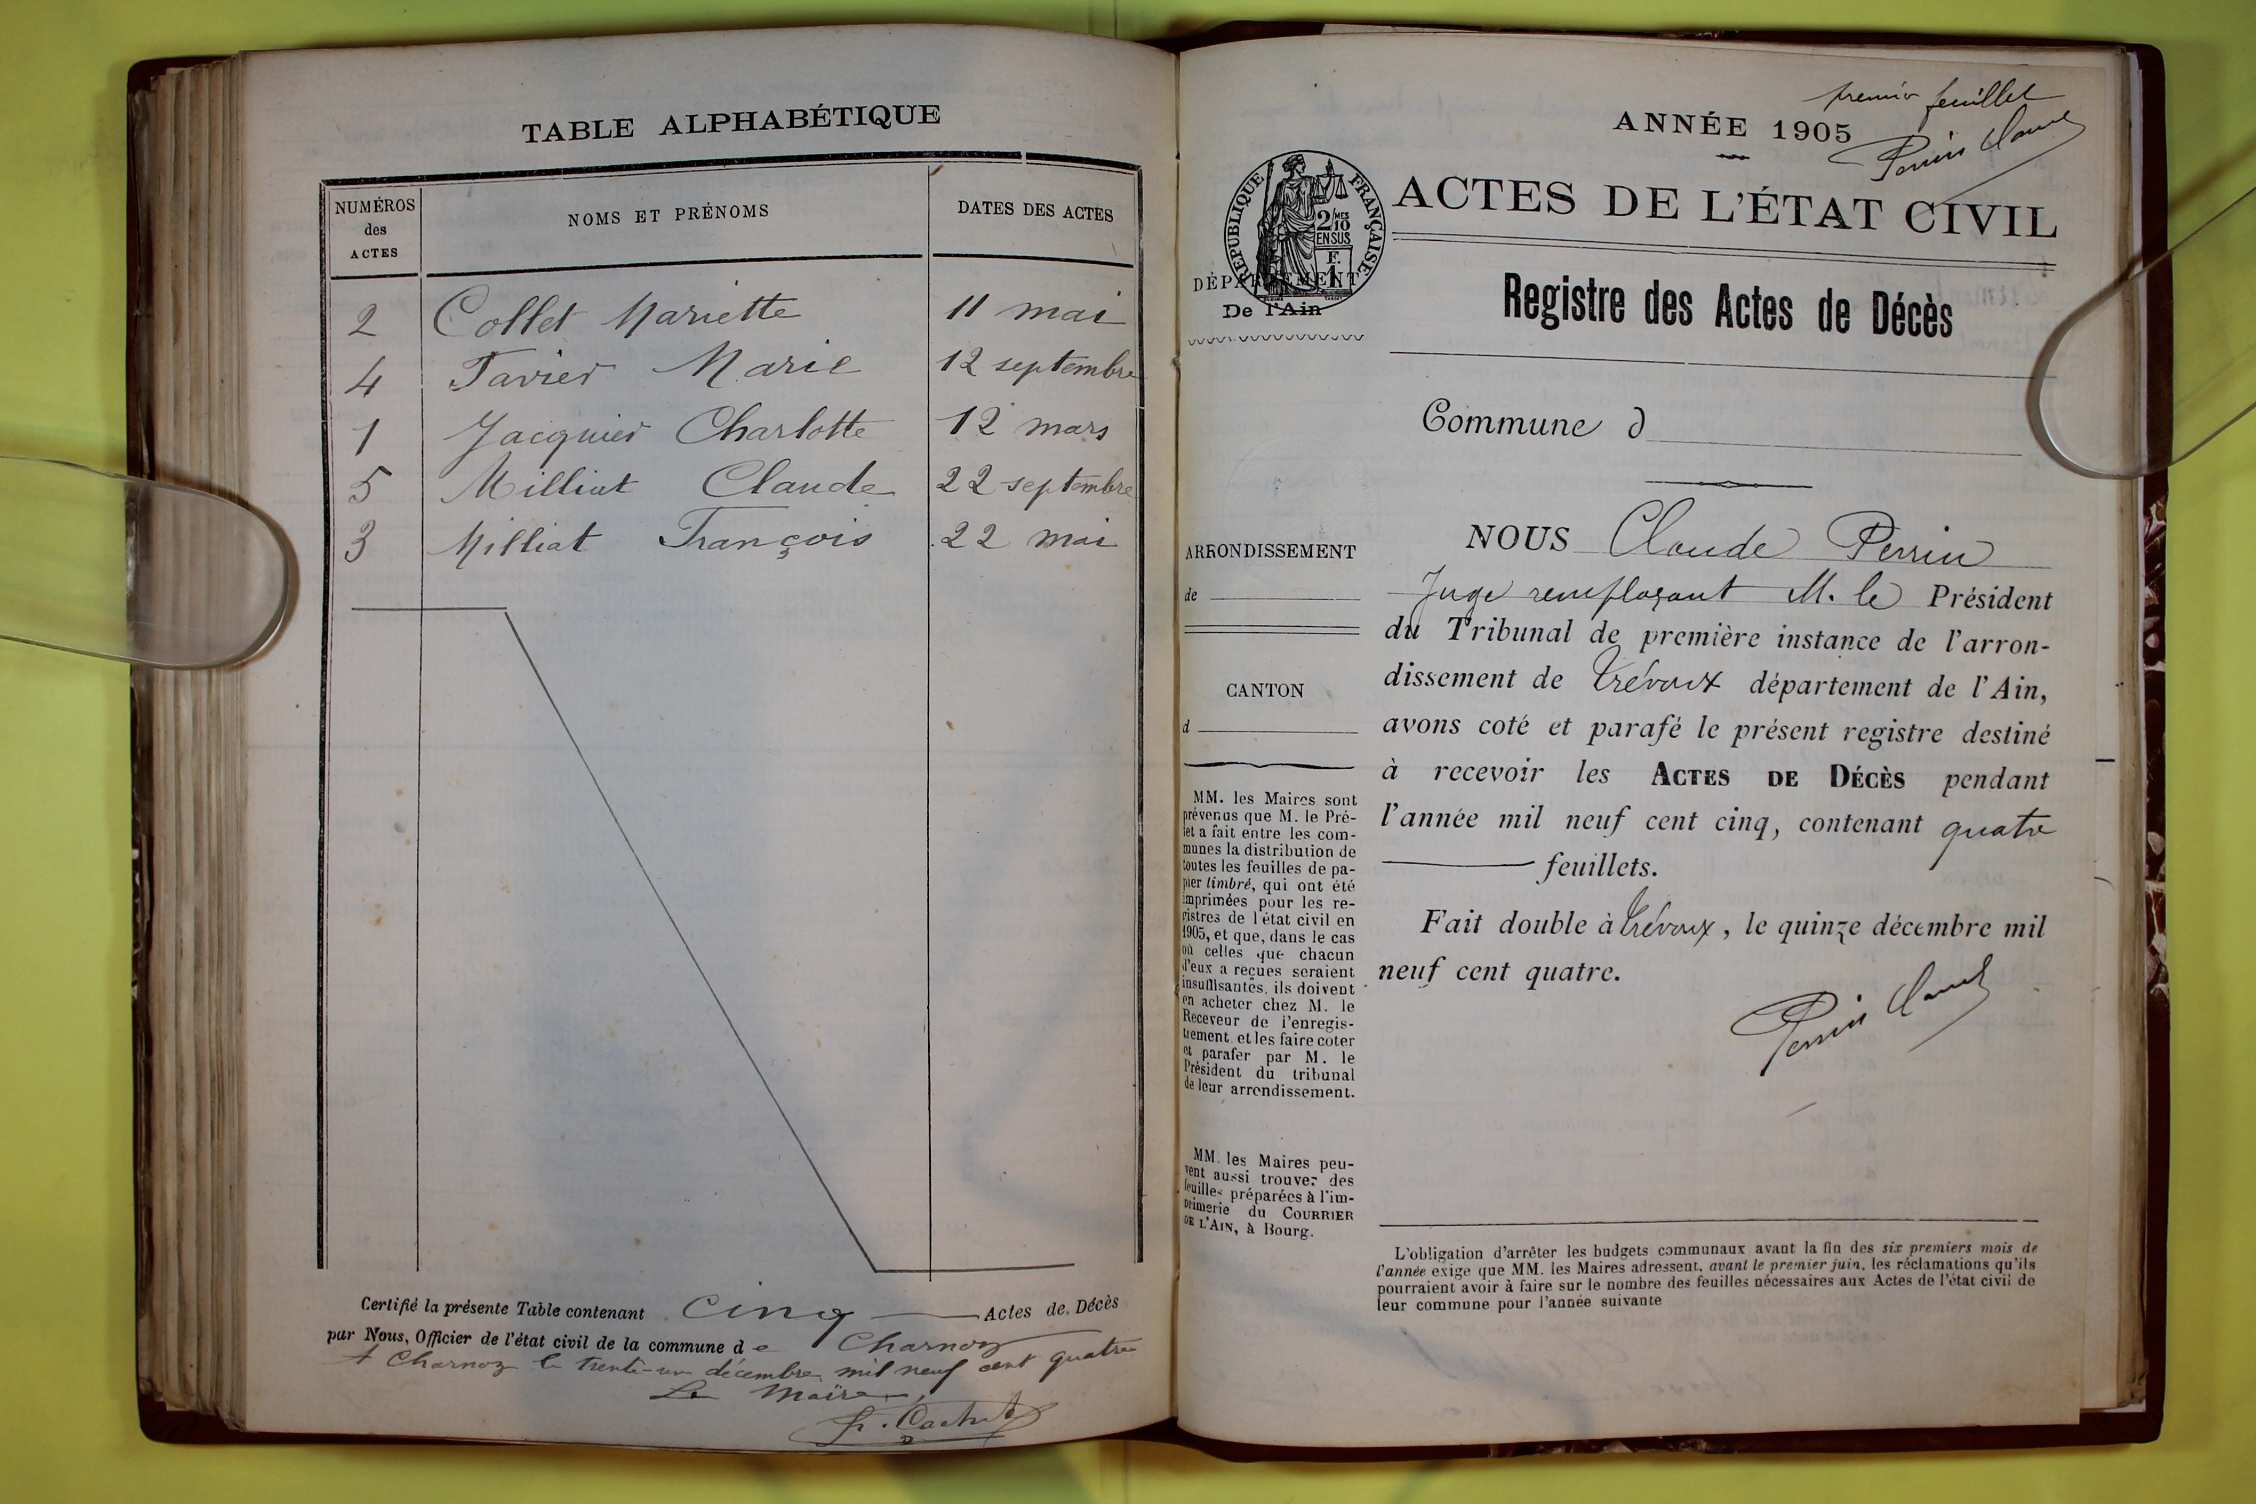 TABLE ALPHABÉTIQUE
NUMÉROS des ACTES
NOMS ET PRÉNOMS
DATES DES ACTES
2 Collet Mariette 11 mai
4 Favier Marie 12 septembre
1 Jacquier Charlotte 12 mars
5 Milliat Claude 22 septembre
3 Milliat François 22 mai
Certifié la présente Table contenant cinq Actes de Décès
par Nous, Officier de l'état civil de la commune de Charnoz
A Charnoz le trente-un décembre mil neuf cent quatre
Le Maire,
premier feuillet
Perrin Claude
ANNÉE 1905
ACTES DE L'ÉTAT CIVIL
RÉPUBLIQUE FRANÇAISE
2/10 MES
EN SUS
F.
1
DÉPARTEMENT
De l'Ain
Registre des Actes de Décès
Commune d
ARRONDISSEMENT
de
CANTON
d
MM. les Maires sont
prévenus que M. le Pré-
fet a fait entre les com-
munes la distribution de
toutes les feuilles de pa-
pier timbré, qui ont été
imprimées pour les re-
gistres de l'état civil en
1905, et que, dans le cas
où celles que chacun
d'eux a reçues seraient
insuffisantes, ils doivent
en acheter chez M. le
Receveur de l'enregis-
trement et les faire coter
et parafer par M. le
Président du tribunal
de leur arrondissement.
MM. les Maires peu-
vent aussi trouver des
feuilles préparées à l'im-
primerie du COURRIER
DE L'AIN, à Bourg.
NOUS Claude Perrin
Juge remplaçant M. le Président
du Tribunal de première instance de l'arron-
dissement de Trévoux département de l'Ain,
avons coté et parafé le présent registre destiné
à recevoir les ACTES DE DÉCÈS pendant
l'année mil neuf cent cinq, contenant quatre
feuillets.
Fait double à Trévoux, le quinze décembre mil
neuf cent quatre.
Perrin Claude
L'obligation d'arrêter les budgets communaux avant la fin des six premiers mois de
l'année exige que MM. les Maires adressent, avant le premier juin, les réclamations qu'ils
pourraient avoir à faire sur le nombre des feuilles nécessaires aux Actes de l'état civil de
leur commune pour l'année suivante